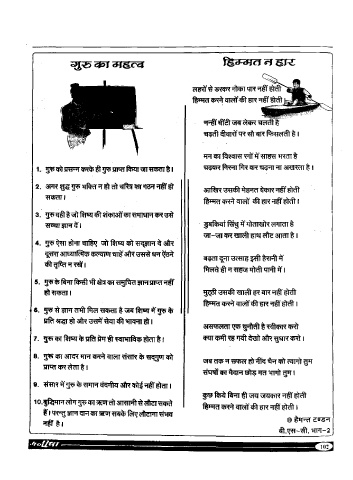 गुरू का महत्व
1. गुरू को प्रसन्न करके ही गुरु प्राप्त किया जा सकता है।
2. अगर शुद्ध गुरू भक्ति न हो तो चरित्र का गठन नहीं हो
सकता।
3. गुरू वही है जो शिष्य की शंकाओं का समाधान कर उसे
सच्चा ज्ञान दें।
4. गुरू ऐसा होना चाहिए जो शिष्य को सद्ज्ञान दे और
दूसरा आध्यात्मिक कल्याण चाहें और उससे धन ऐंठने
की तृप्ति न रखें।
5. गुरू के बिना किसी भी क्षेत्र का समुचित ज्ञान प्राप्त नहीं
हो सकता।
6. गुरू से ज्ञान तभी मिल सकता है जब शिष्य में गुरू के
प्रति श्रद्धा हो और उसमें सेवा की भावना हो।
7. गुरू का शिष्य के प्रति प्रेम ही स्वाभाविक होता है।
8. गुरू का आदर मान करने वाला संसार के सद्गुण को
प्राप्त कर लेता है।
9. संसार में गुरू के समान वंदनीय और कोई नहीं होता।
10. बुद्धिमान लोग गुरू का ऋण तो आसानी से लौटा सकते
हैं। परन्तु ज्ञान दान का ऋण सबके लिए लौटाना संभव
नहीं है।
हिम्मत न हार
लहरों से डरकर नौका पार नहीं होती
हिम्मत करने वालों की हार नहीं होती।
नन्हीं चींटी जब लेकर चलती है
चढ़ती दीवारों पर सौ बार फिसलती है।
मन का विश्वास रगों में साहस भरता है
चढ़कर गिरना गिर कर चढ़ना ना अखरता है।
आखिर उसकी मेहनत बेकार नहीं होती
हिम्मत करने वालों की हार नहीं होती।
डुबकियां सिंधु में गोताखोर लगाता है
जा-जा कर खाली हाथ लौट आता है।
बढ़ता दूना उत्साह इसी हैरानी में
मिलते ही न सहज मोती पानी में।
मुट्ठी उसकी खाली हर बार नहीं होती
हिम्मत करने वालों की हार नहीं होती।
असफलता एक चुनौती है स्वीकार करो
क्या कमी रह गयी देखो और सुधार करो।
जब तक न सफल हो नींद चैन को त्यागो तुम
संघर्षों का मैदान छोड़ मत भागो तुम।
कुछ किये बिना ही जय जयकार नहीं होती
हिम्मत करने वालों की हार नहीं होती।
हेमन्त टण्डन
बी.एस-सी. भाग-2
102